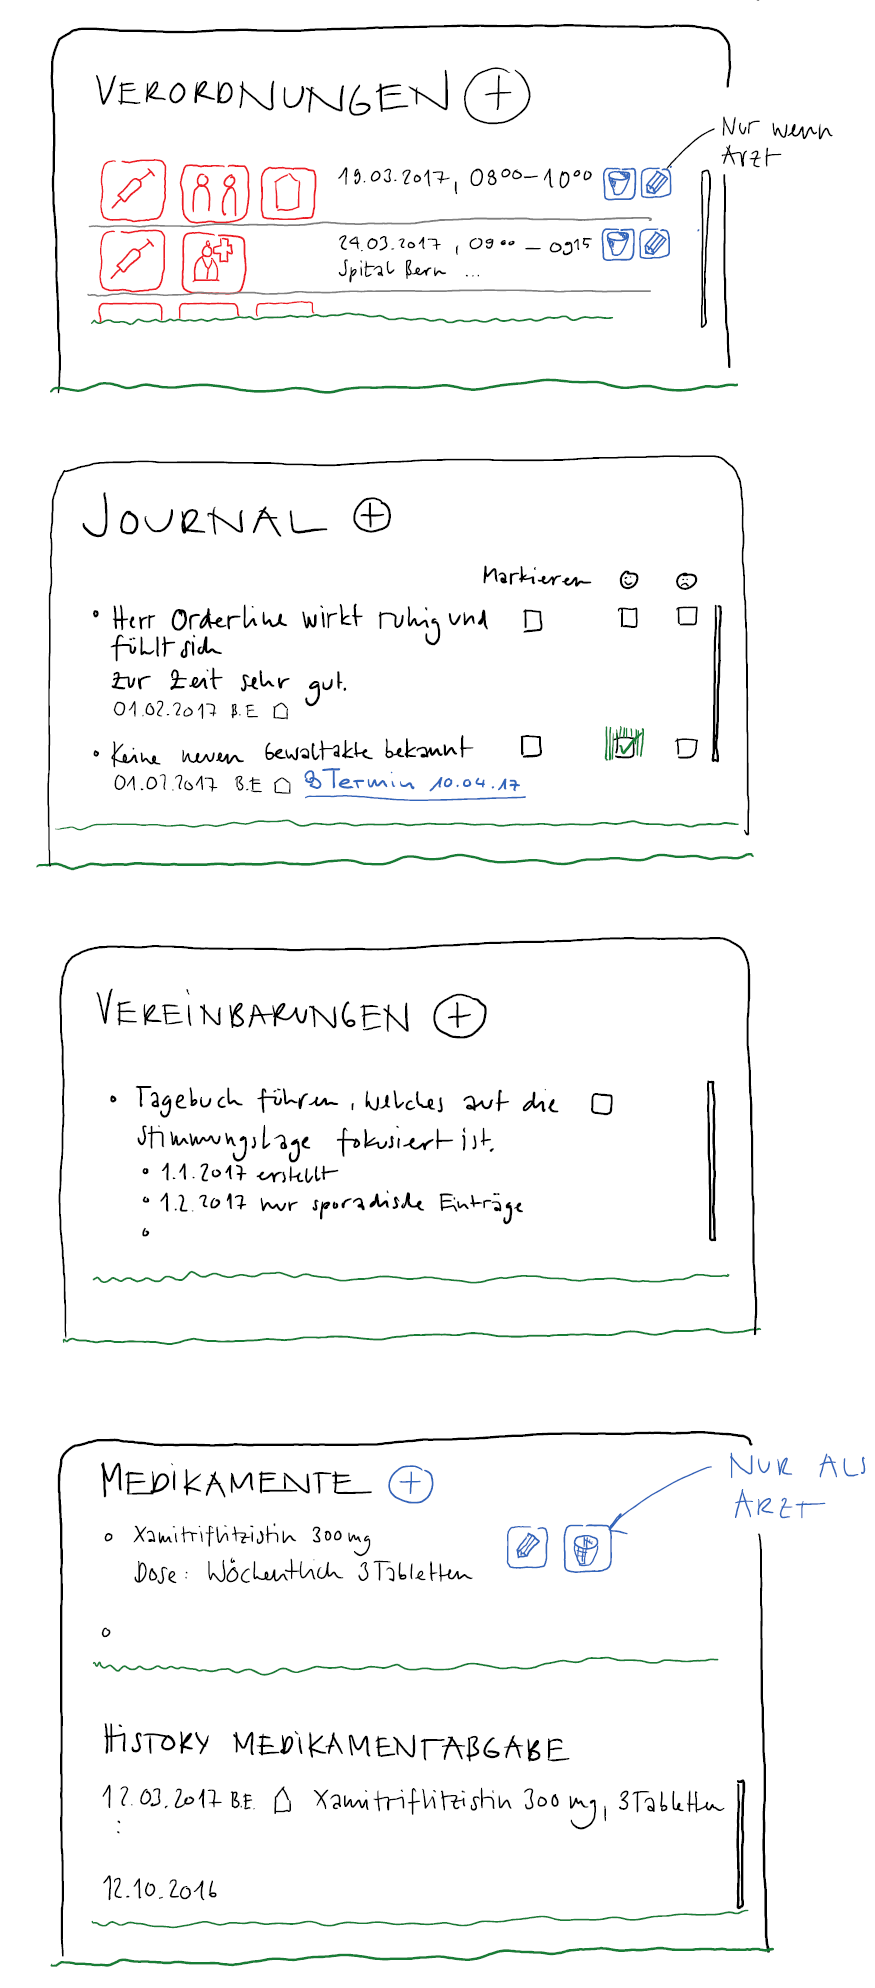 VERORDNUNGEN +
Nur wenn
Arzt
19.03.2017, 08⁰⁰ – 10⁰⁰
24.03.2017, 09⁰⁰ – 0915
Spital Bern ...
JOURNAL +
Markieren
Herr Orderline wirkt ruhig und
fühlt sich
zur Zeit sehr gut.
01.02.2017 B.E
Keine neuen Gewaltakte bekannt
01.02.2017 B.E Termin 10.04.17
VEREINBARUNGEN +
Tagebuch führen, welches auf die
Stimmungslage fokusiert ist.
1.1.2017 erstellt
1.2.2017 nur sporadische Einträge
MEDIKAMENTE +
NUR ALS
ARZT
Xamitriflitzistin 300 mg
Dose: Wöchentlich 3 Tabletten
HISTORY MEDIKAMENTABGABE
12.03.2017 B.E. Xamitriflitzistin 300 mg, 3 Tabletten
:
12.10.2016